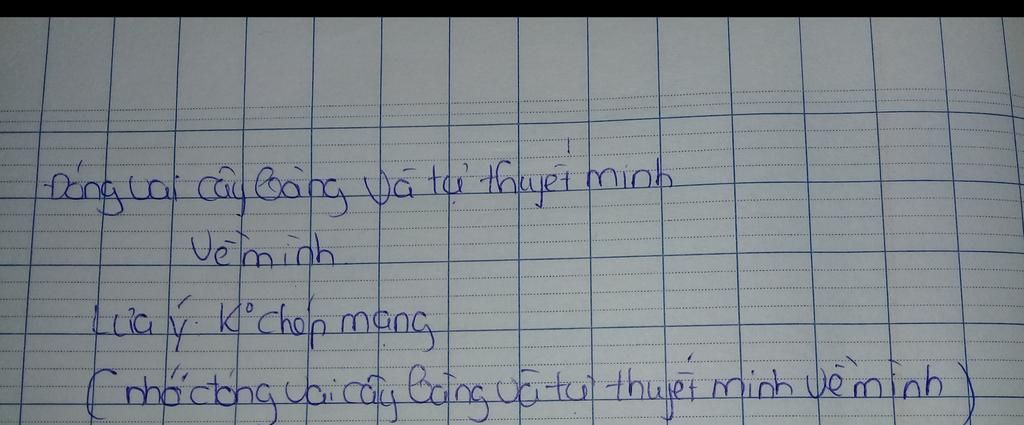 Đóng vai cây bàng và tự thuyết minh
Về mình
Lưa ý. K° chép mạng
(nhớ đóng vai cây bàng và tự thuyết minh về mình)